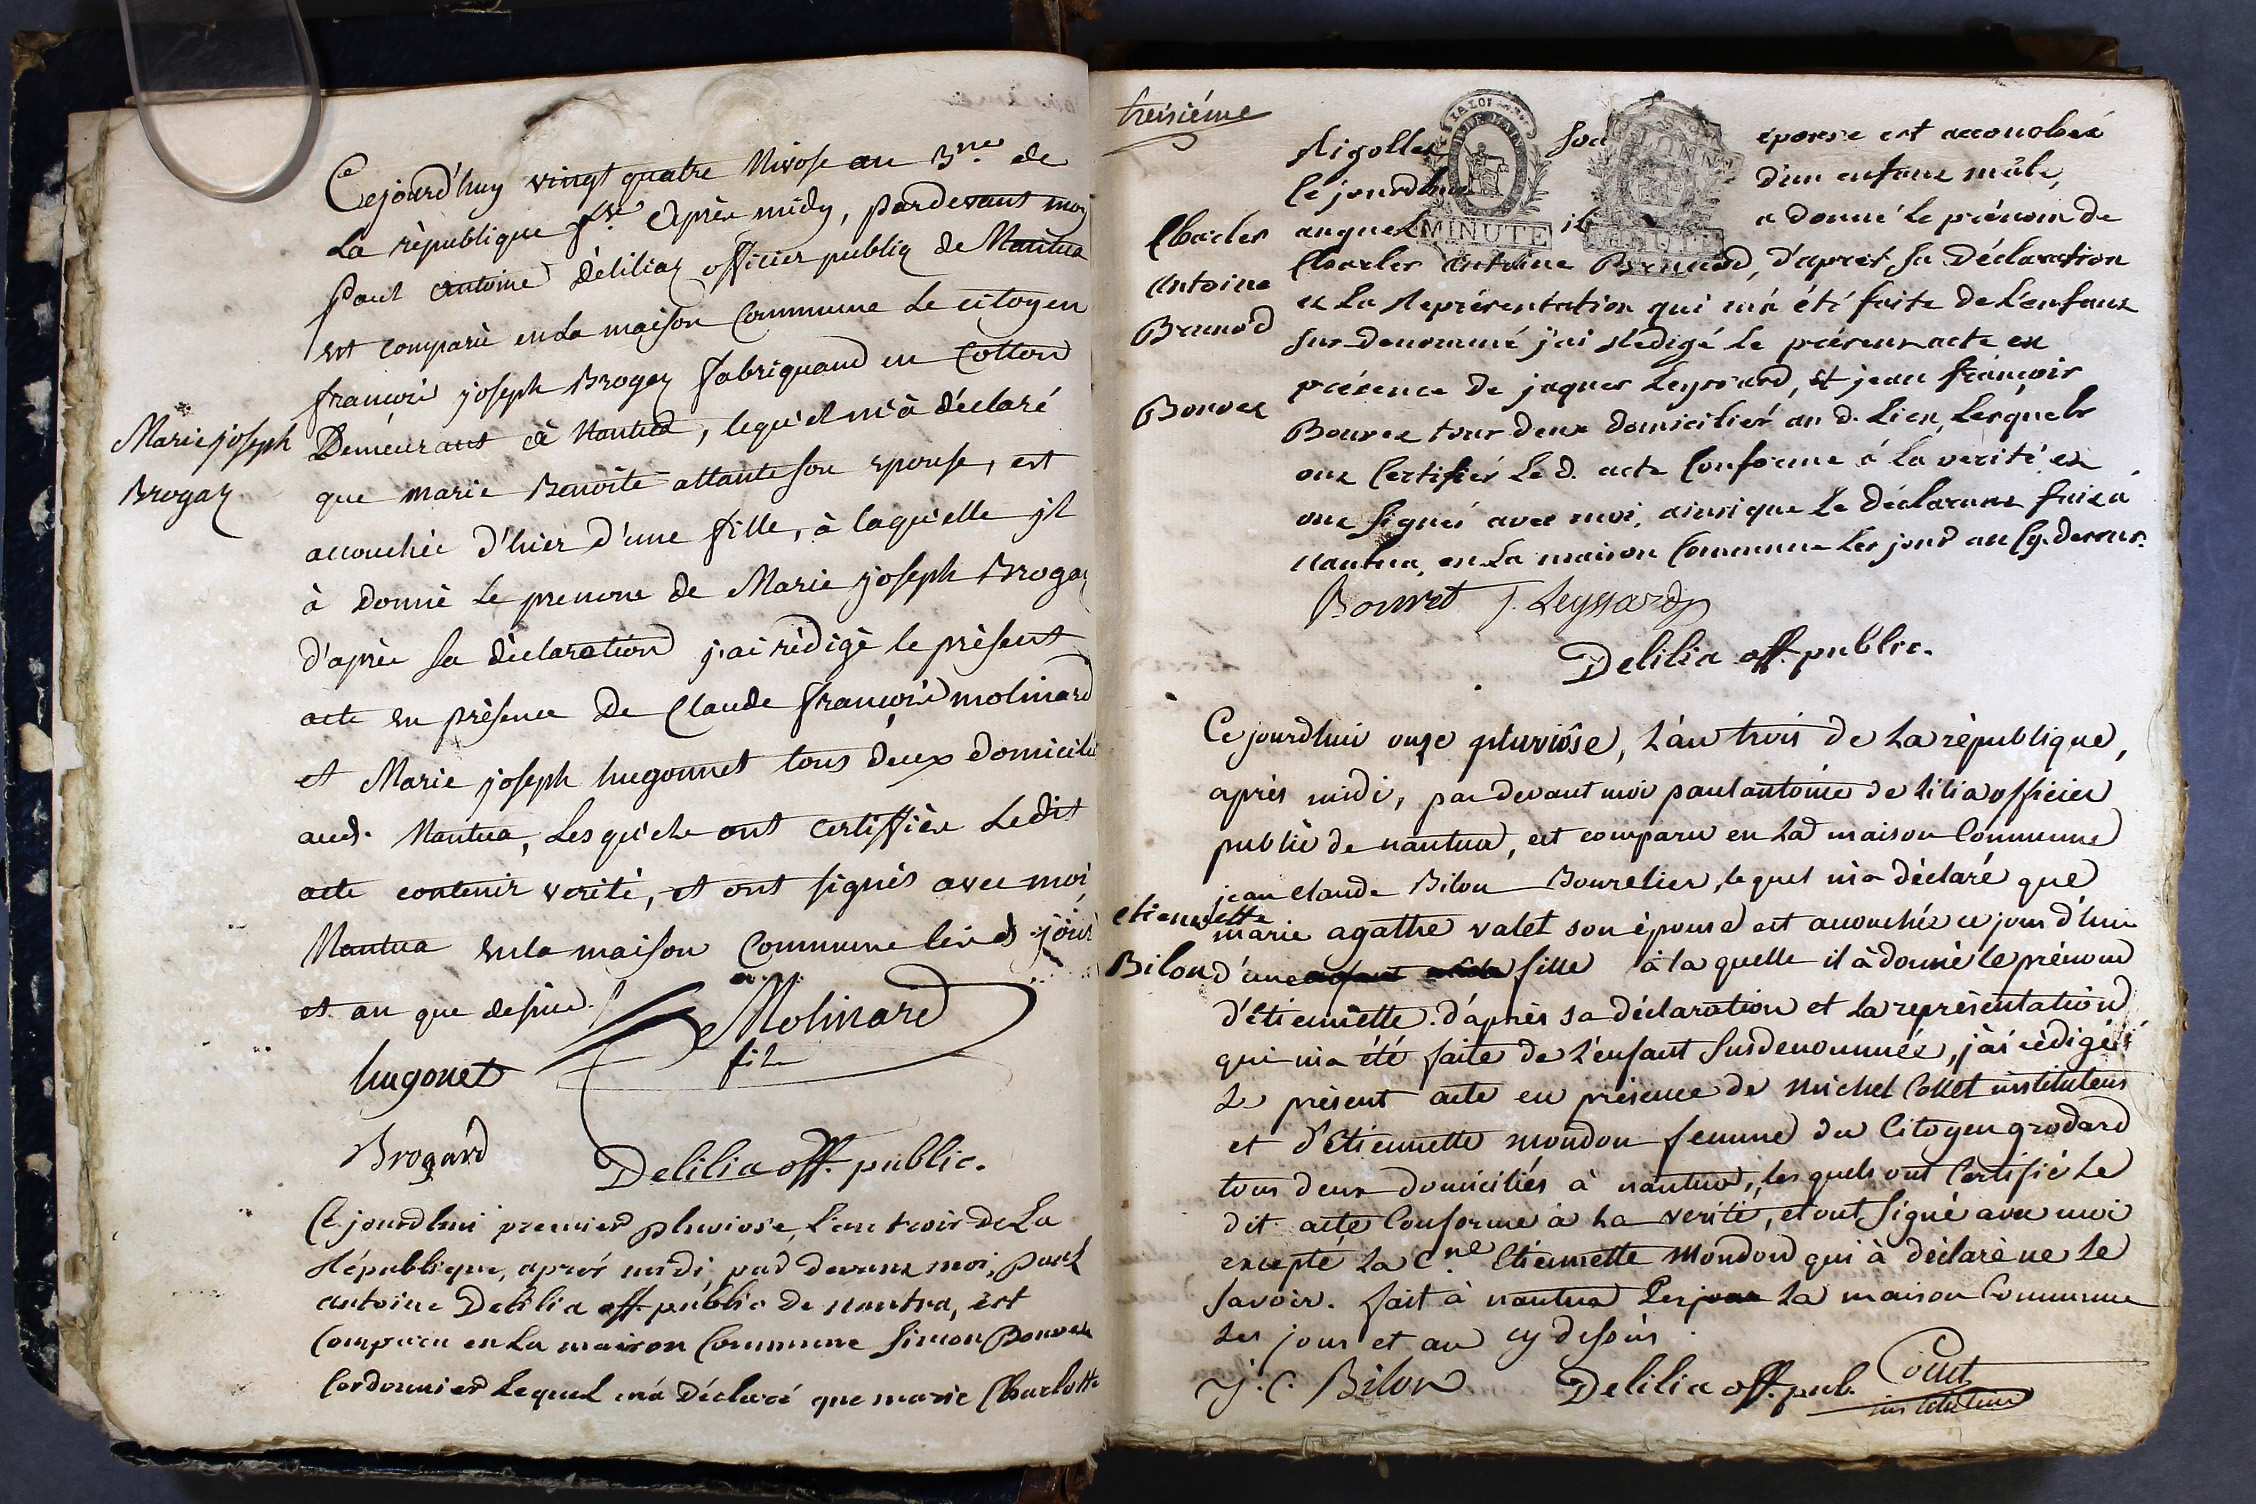 Ce jourd'huy vingt quatre Nivose an 3.ne de
La république f.se Après midy, pardevant moy
paul antoine Déliliaz officier publiq de Nantua
est comparû en La maison Commune Le citoyen
françois joseph Brogaz fabriquand en Cotton
Demeurant à Nantua, lequ'el m'à déclaré
Marie joseph
Brogaz
que marie Benoite attante son epouse, est
accouchée d'hier d'une fille, à laqu'elle jl
à donné Le prenom de Marie joseph Brogaz
d'après sa déclaration j'ai rédigé le présent
acte en présence de Claude françois molinard
et Marie joseph hugonnet tous deux domicilié
aud. Nantua, Lesqu'els ont certiffiéx Ledit
acte contenir verité, et ont signés avec moi,
Nantua en la maison Commune les jour
et an que dessus.
Molinard
fils
hugonet
Brogard
Delilia off. public.
Ce jourdhui premier pluviose, L'an trois de La
République, aprés midi, par devant moi, paul
antoine Delilia off. public de nantua, est
Comparu en La maison Commune Simon Bouvet
Cordonnier Lequel m'a Déclaré que marie Charlotte
treisiéme
Rigollet son épouse est accouchée
Ce jourdhui d'un enfant mâle,
auquel il a donné Le prénom de
MINUTE
MINUTE
Charles
Antoine
Brunod
Charles antoine Brunod, d'aprés sa Déclaration
et La Représentation qui m'a été faite de L'enfant
sus-denommé j'ai Rédigé Le présent acte en
présence de jaques Leyssard, et jean françois
Bouvet
Bouvet tous deux domiciliés au d. Lieu, Lesquels
ont Certifiés Le d. acte Conforme á La verité et
ont signés avec moi, ainsi que Le Déclarant fait à
nantua, en La maison Commune Les jour an Cy-dessus.
Bouvet J. Leyssard
Delilia off. public.
Ce jourdhui onze pluviôse, L'an trois de La république,
après midi, par devant moi paul antoine de lilia officier
public de nantua, est comparu en La maison Commune
jean Claude Bilon Bourelier, lequel m'a déclaré que
etiennette
Bilon
marie agathe valet son épouse est accouchée ce jour d'hui
d'une fille à la quelle il à donné le prénom
d'étiennette. d'après sa déclaration et La représentation
qui m'a été faite de L'enfant susdenommée, j'ai rédigé
Le présent acte en présence de Michel Collet instituteur
et d'Etiennette Mondon femme du Citoyen grodard
tous deux domiciliés à nantua, les quels ont Certifié Le
dit acte Conforme à La verité, et ont signé avec moi
excepté La C.ne Etiennette Mondon qui à déclaré ne Le
savoir. fait à nantua La maison Commune
Les jour et an cy dessus.
J. C. Bilon Delilia off. pub. Collet
instituteur